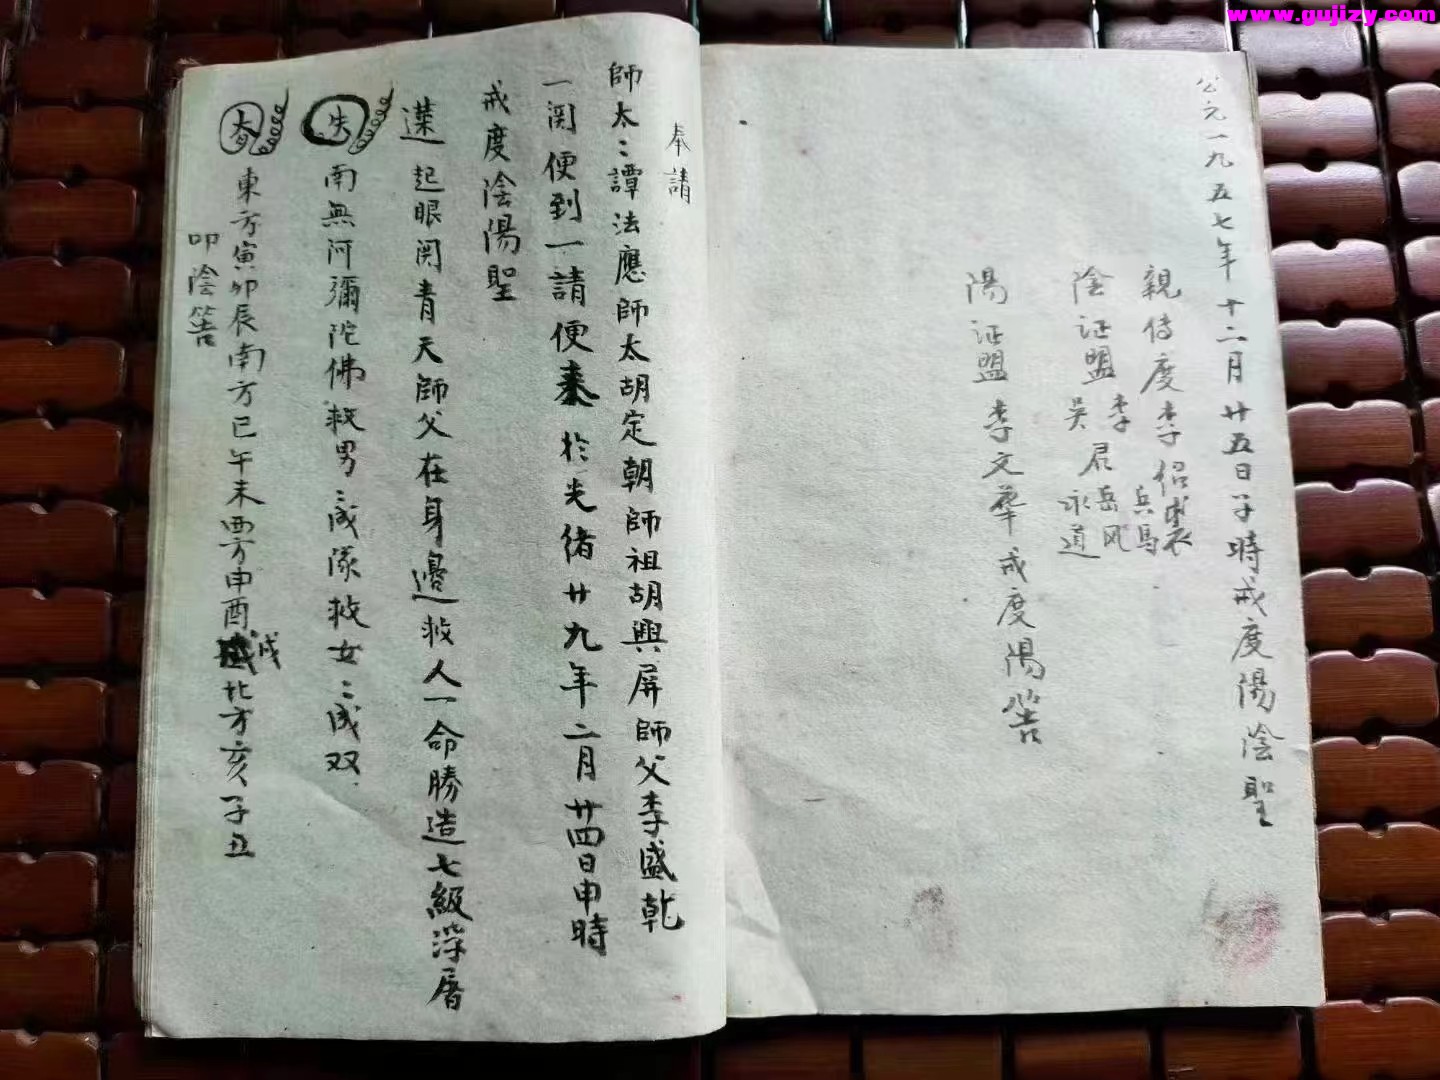 www.gujizy.com
公元一九五七年十二月廿五日子時戒度陽陰聖
親傳度李紹裘
兵馬
陰証盟李君岳风
吳永道
陽証盟李文華戒度陽筶
奉請
師太〻譚法應師太胡定朝師祖胡興屏師父李盛乾
一関便到一請便来於光緒廿九年二月廿四日申時
戒度陰陽聖
起眼関青天師父在身邊救人一命勝造七級深層
失 南無阿彌陀佛救男〻成隊救女〻成双
東方寅卯辰南方巳午未西方申酉戌北方亥子丑
叩陰筶